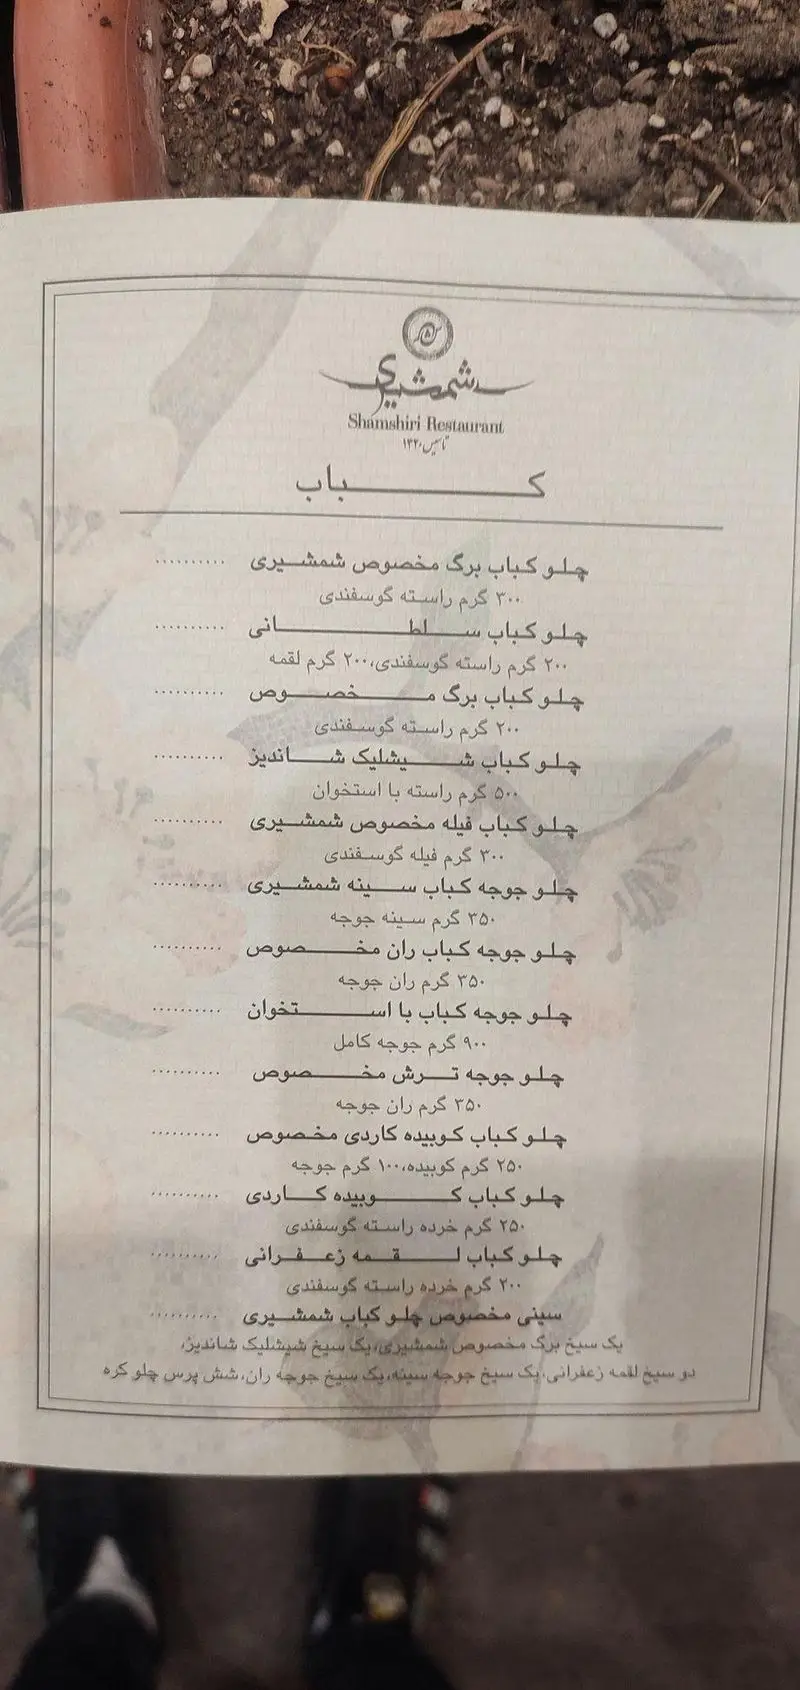 شمشیری
Shamshiri Restaurant
تاسیس ۱۳۲۰
کباب
چلو کباب برگ مخصوص شمشیری ..........
۳۰۰ گرم راسته گوسفندی
چلو کباب سلطانی ..........
۲۰۰ گرم راسته گوسفندی،۲۰۰ گرم لقمه
چلو کباب برگ مخصوص ..........
۲۰۰ گرم راسته گوسفندی
چلو کباب شیشلیک شاندیز ..........
۵۰۰ گرم راسته با استخوان
چلو کباب فیله مخصوص شمشیری ..........
۳۰۰ گرم فیله گوسفندی
چلو جوجه کباب سینه شمشیری ..........
۳۵۰ گرم سینه جوجه
چلو جوجه کباب ران مخصوص ..........
۳۵۰ گرم ران جوجه
چلو جوجه کباب با استخوان ..........
۹۰۰ گرم جوجه کامل
چلو جوجه ترش مخصوص ..........
۳۵۰ گرم ران جوجه
چلو کباب کوبیده کاردی مخصوص ..........
۲۵۰ گرم کوبیده،۱۰۰ گرم جوجه
چلو کباب کوبیده کاردی ..........
۲۵۰ گرم خرده راسته گوسفندی
چلو کباب لقمه زعفرانی ..........
۲۰۰ گرم خرده راسته گوسفندی
سینی مخصوص چلو کباب شمشیری ..........
یک سیخ برگ مخصوص شمشیری،یک سیخ شیشلیک شاندیز،
دو سیخ لقمه زعفرانی،یک سیخ جوجه سینه،یک سیخ جوجه ران،شش پرس چلو کره